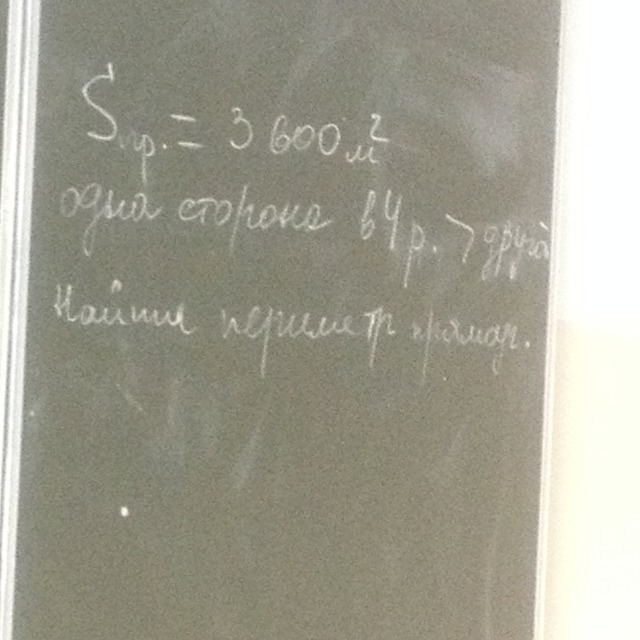 Sпр. = 3 600 м²
одна сторона в 4 р. > другой
Найти периметр прямоуг.